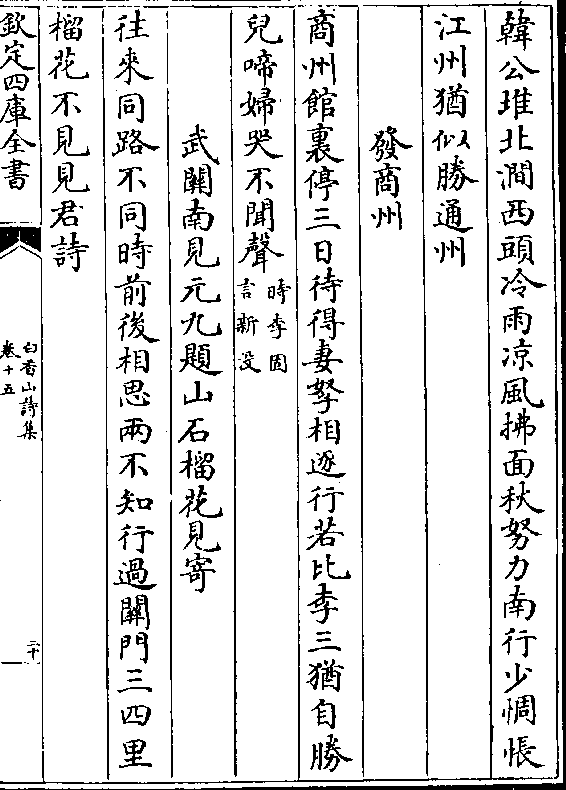 韓公堆北澗西頭冷雨凉風拂面秋努力南行少惆悵
江州猶似勝通州
發商州
商州館裏停三日待得妻孥相逐行若比李三猶自勝
兒啼婦哭不聞聲時李固言新沒
武關南見元九題山石榴花見寄
往來同路不同時前後相思兩不知行過關門三四里
榴花不見見君詩
欽定四庫全書
白香山詩集
卷十五
二十